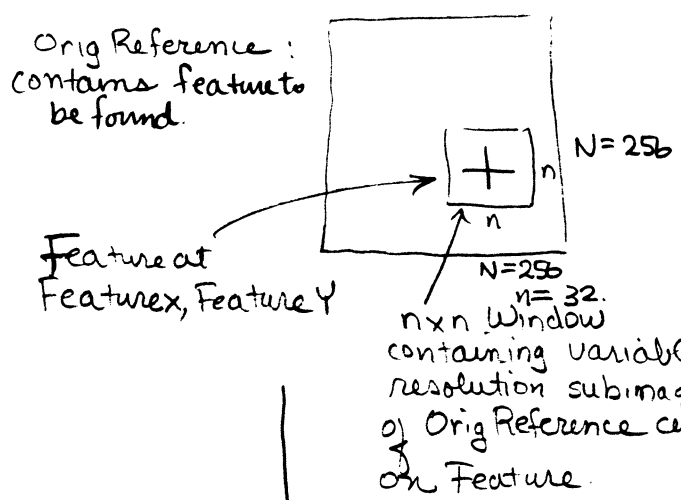 Orig Reference :
contains feature to
be found.
N = 256
n
n
Feature at
Featurex, Feature Y
N = 256
n = 32.
n x n Window
containing variabl
resolution subimag
of Orig Reference ce
on Feature.